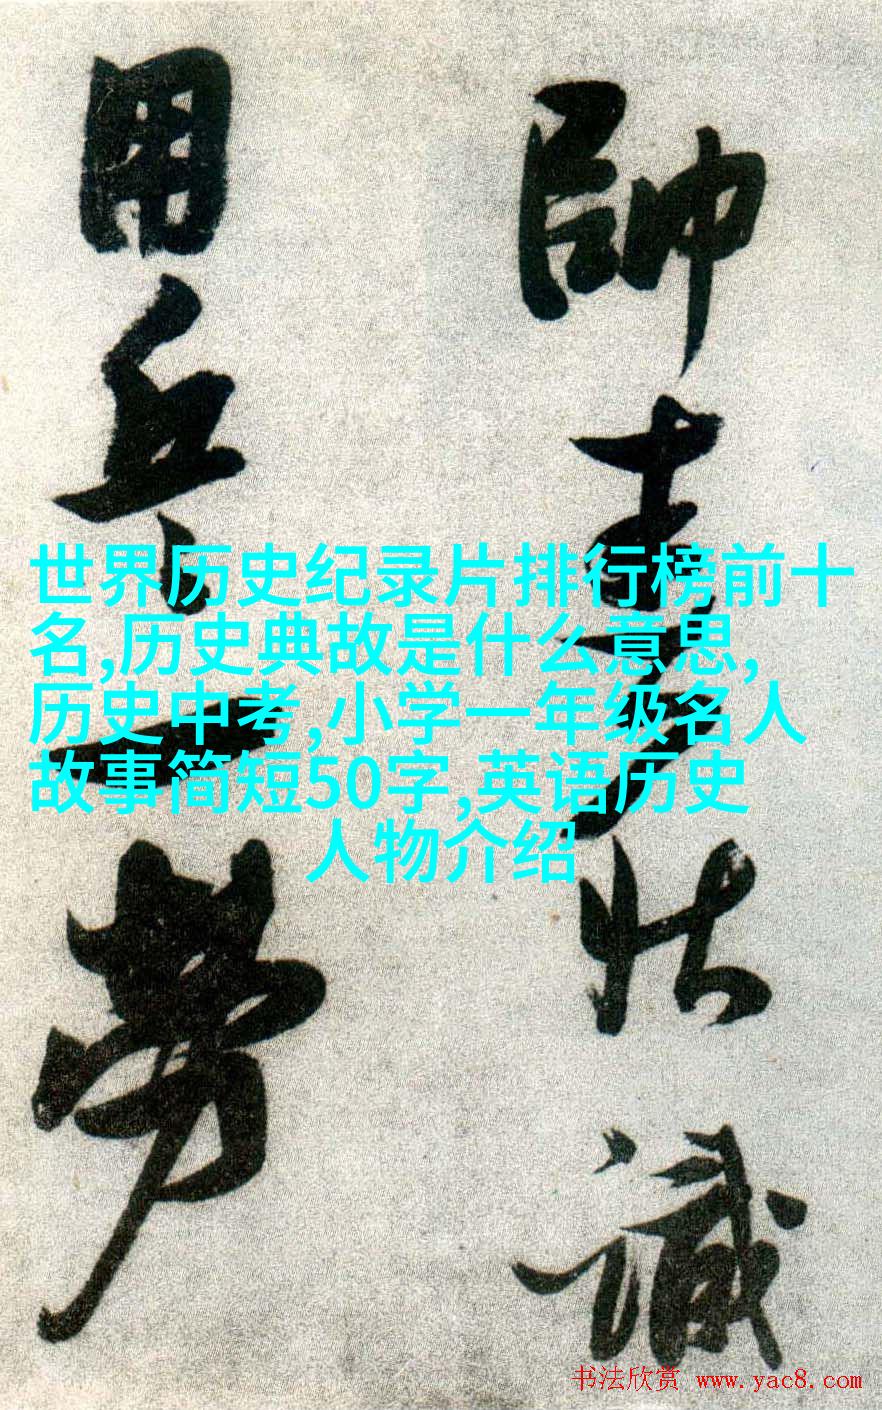 帥
識
用兵一勞
世界历史纪录片排行榜前十
名,历史典故是什么意思,
历史中考,小学一年级名人
故事简短50字,英语历史
人物介绍
书法欣赏 www.yac8.com